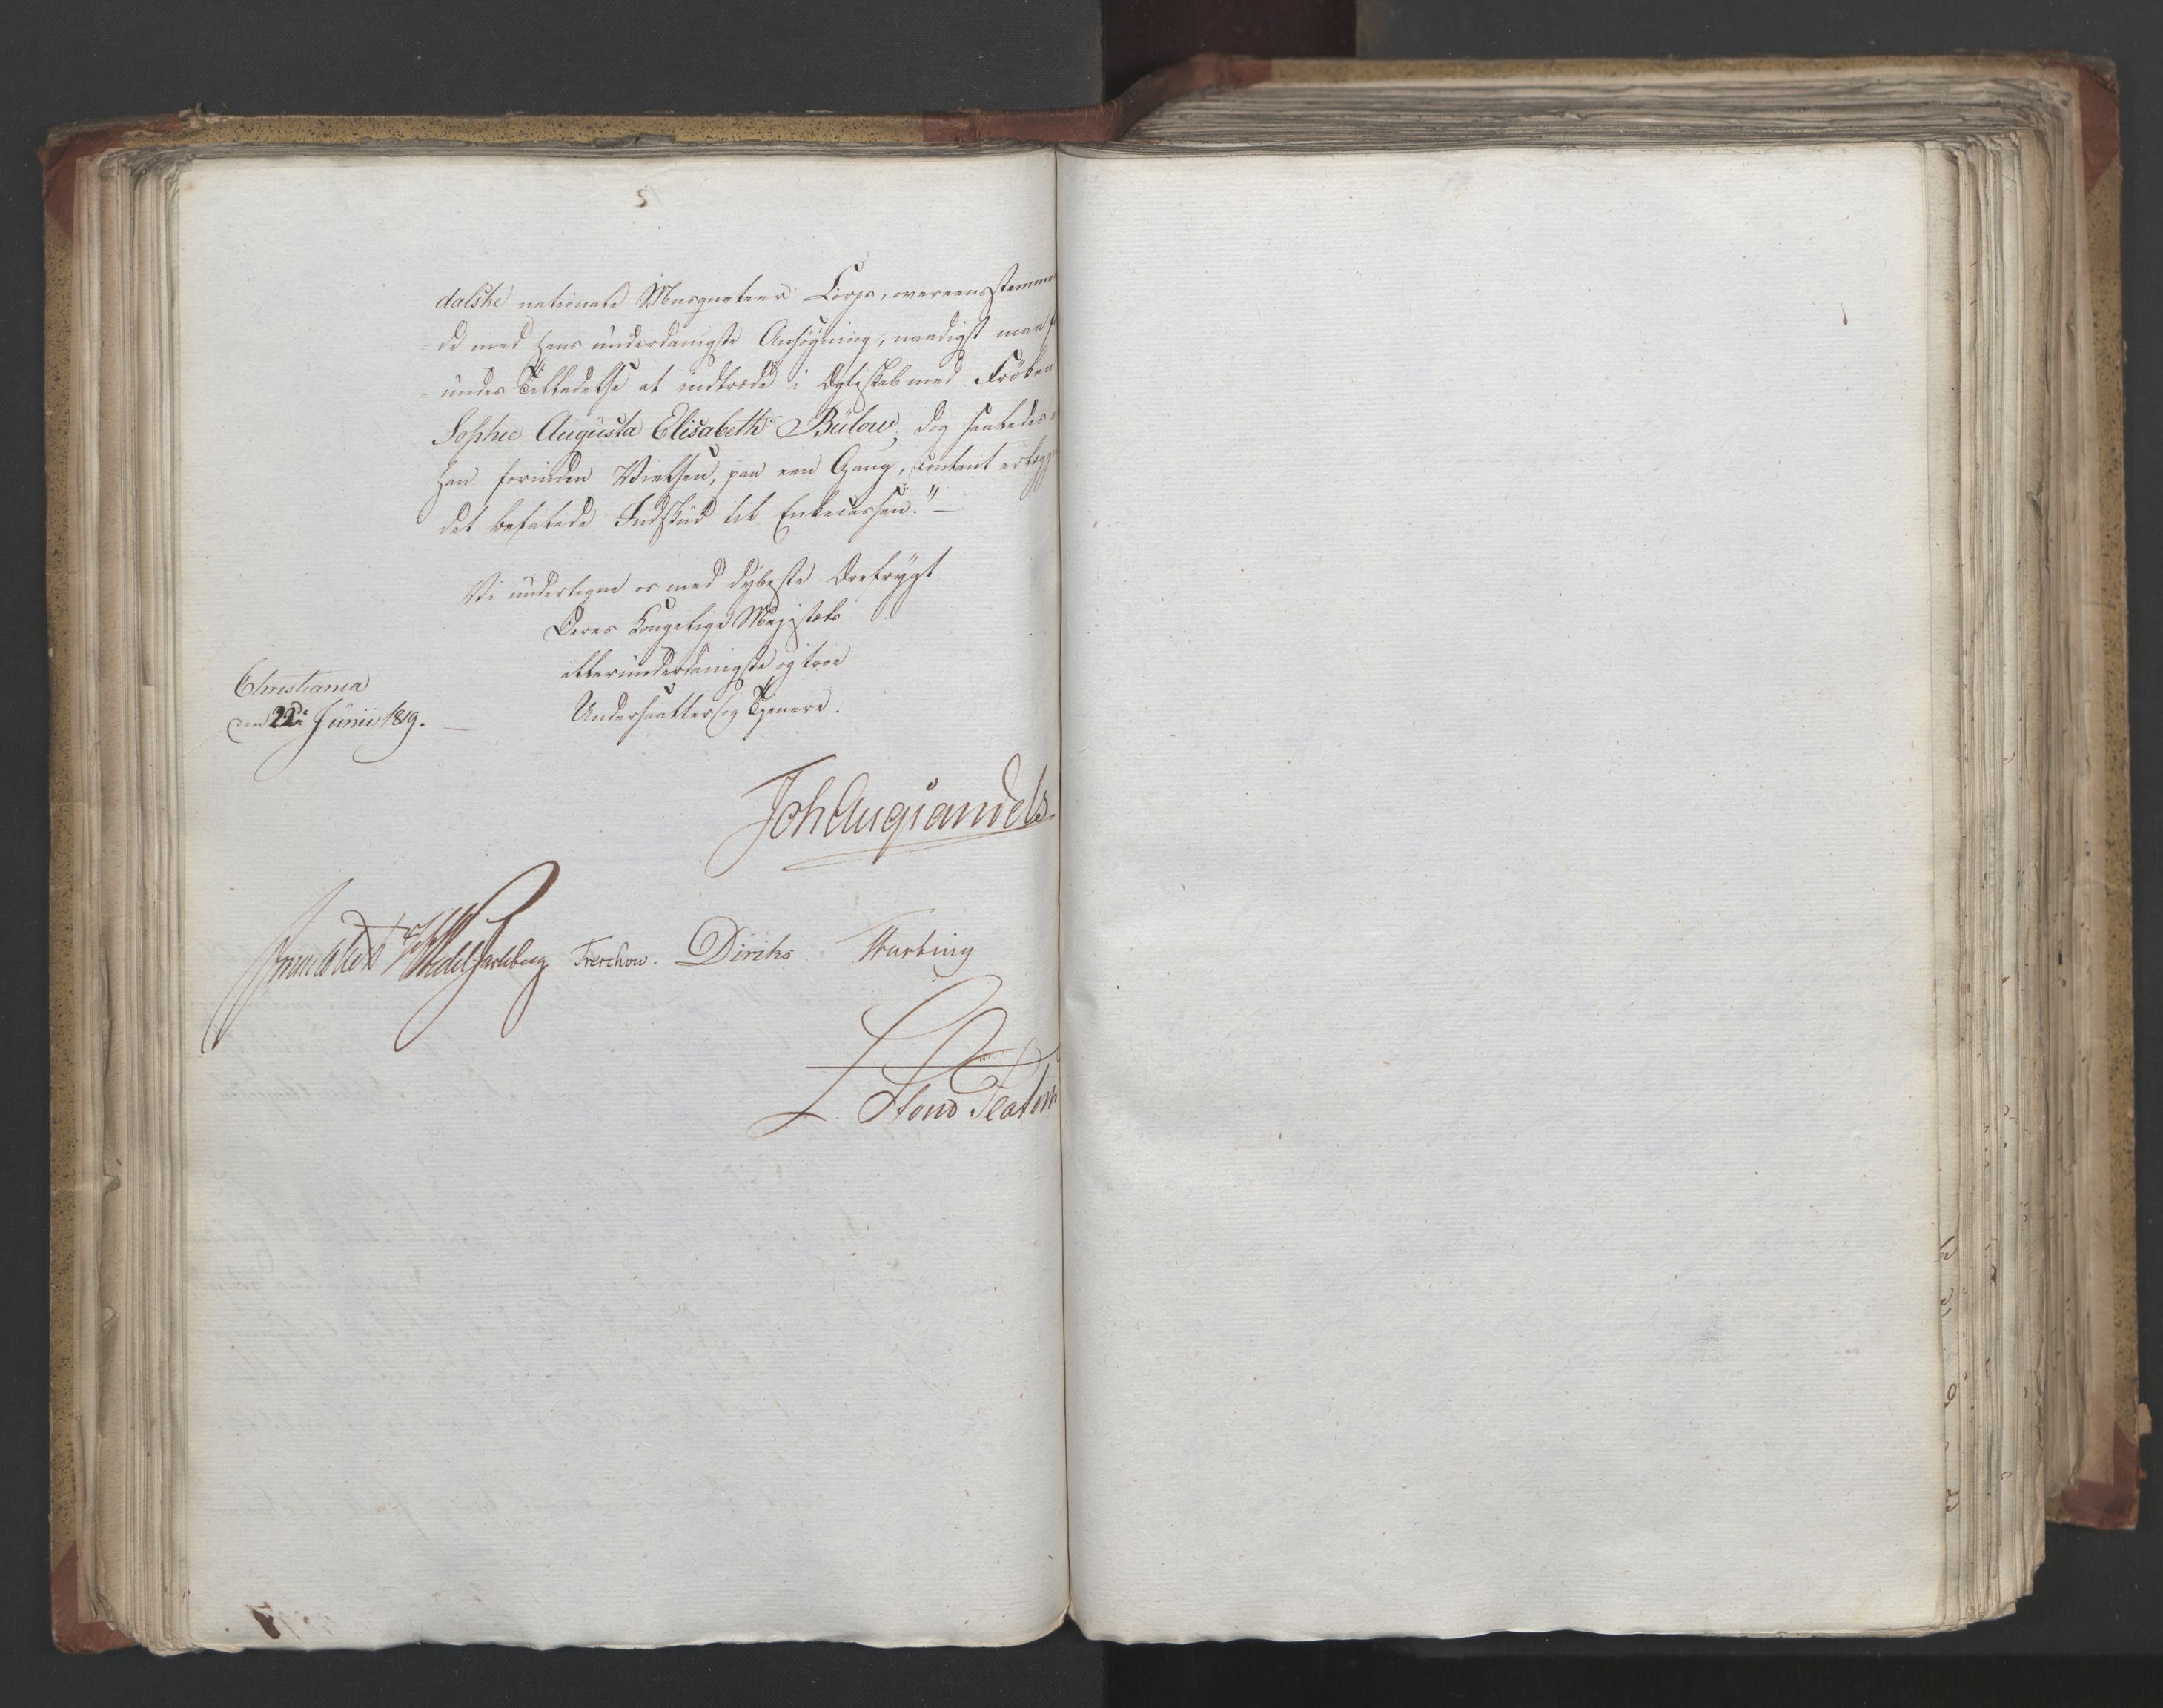 dalske nationale Musqueteer Corps, overeensstemmen
=de med hans underdanigste Ansøgning, naadigst maa for
=undes Tilladelse at indtræde i Ægteskab med Frøken
Sophie Augusta Elisabeth Bülow, dog saaledes
han forinden Vielsen, paa een Gang, contant erlægger
det befalede Indskud til Enkecassen." —
Vi undertegne os med dybeste Ærefrygt
Deres Kongelige Majestæts
allerunderdanigste og troe
Undersaatter og Tjenere.
Christiania
den 22de Junii 1819. —
Joh Aug Sandels
Wedel Jarlsberg Treschow. Diriks